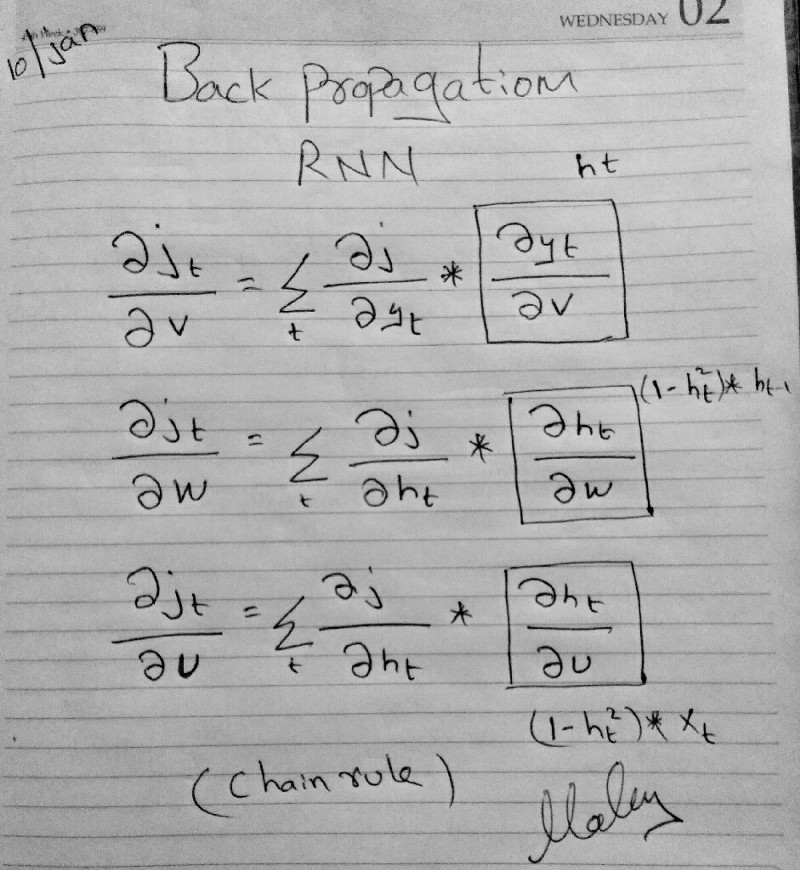 WEDNESDAY 02
10/Jan
Back Propagation
RNN
ht
∂jₜ/∂v = Σₜ ∂j/∂yₜ * ∂yₜ/∂v
(1-hₜ²)* hₜ₋₁
∂jₜ/∂w = Σₜ ∂j/∂hₜ * ∂hₜ/∂w
∂jₜ/∂u = Σₜ ∂j/∂hₜ * ∂hₜ/∂u
(1-hₜ²)* xₜ
(Chain rule)